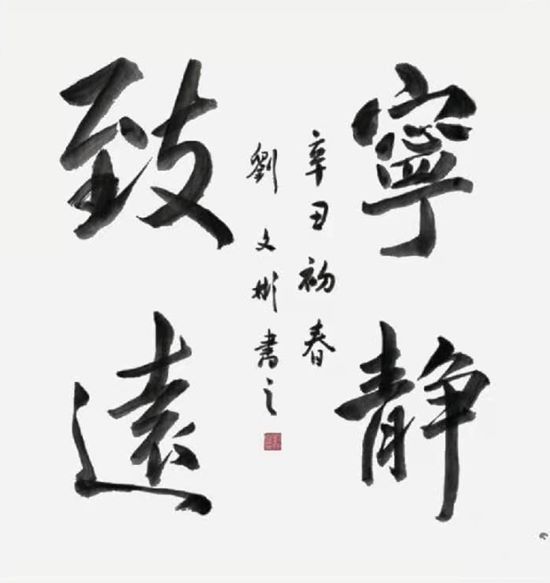 寧靜
致遠
辛丑初春
劉文彬書之